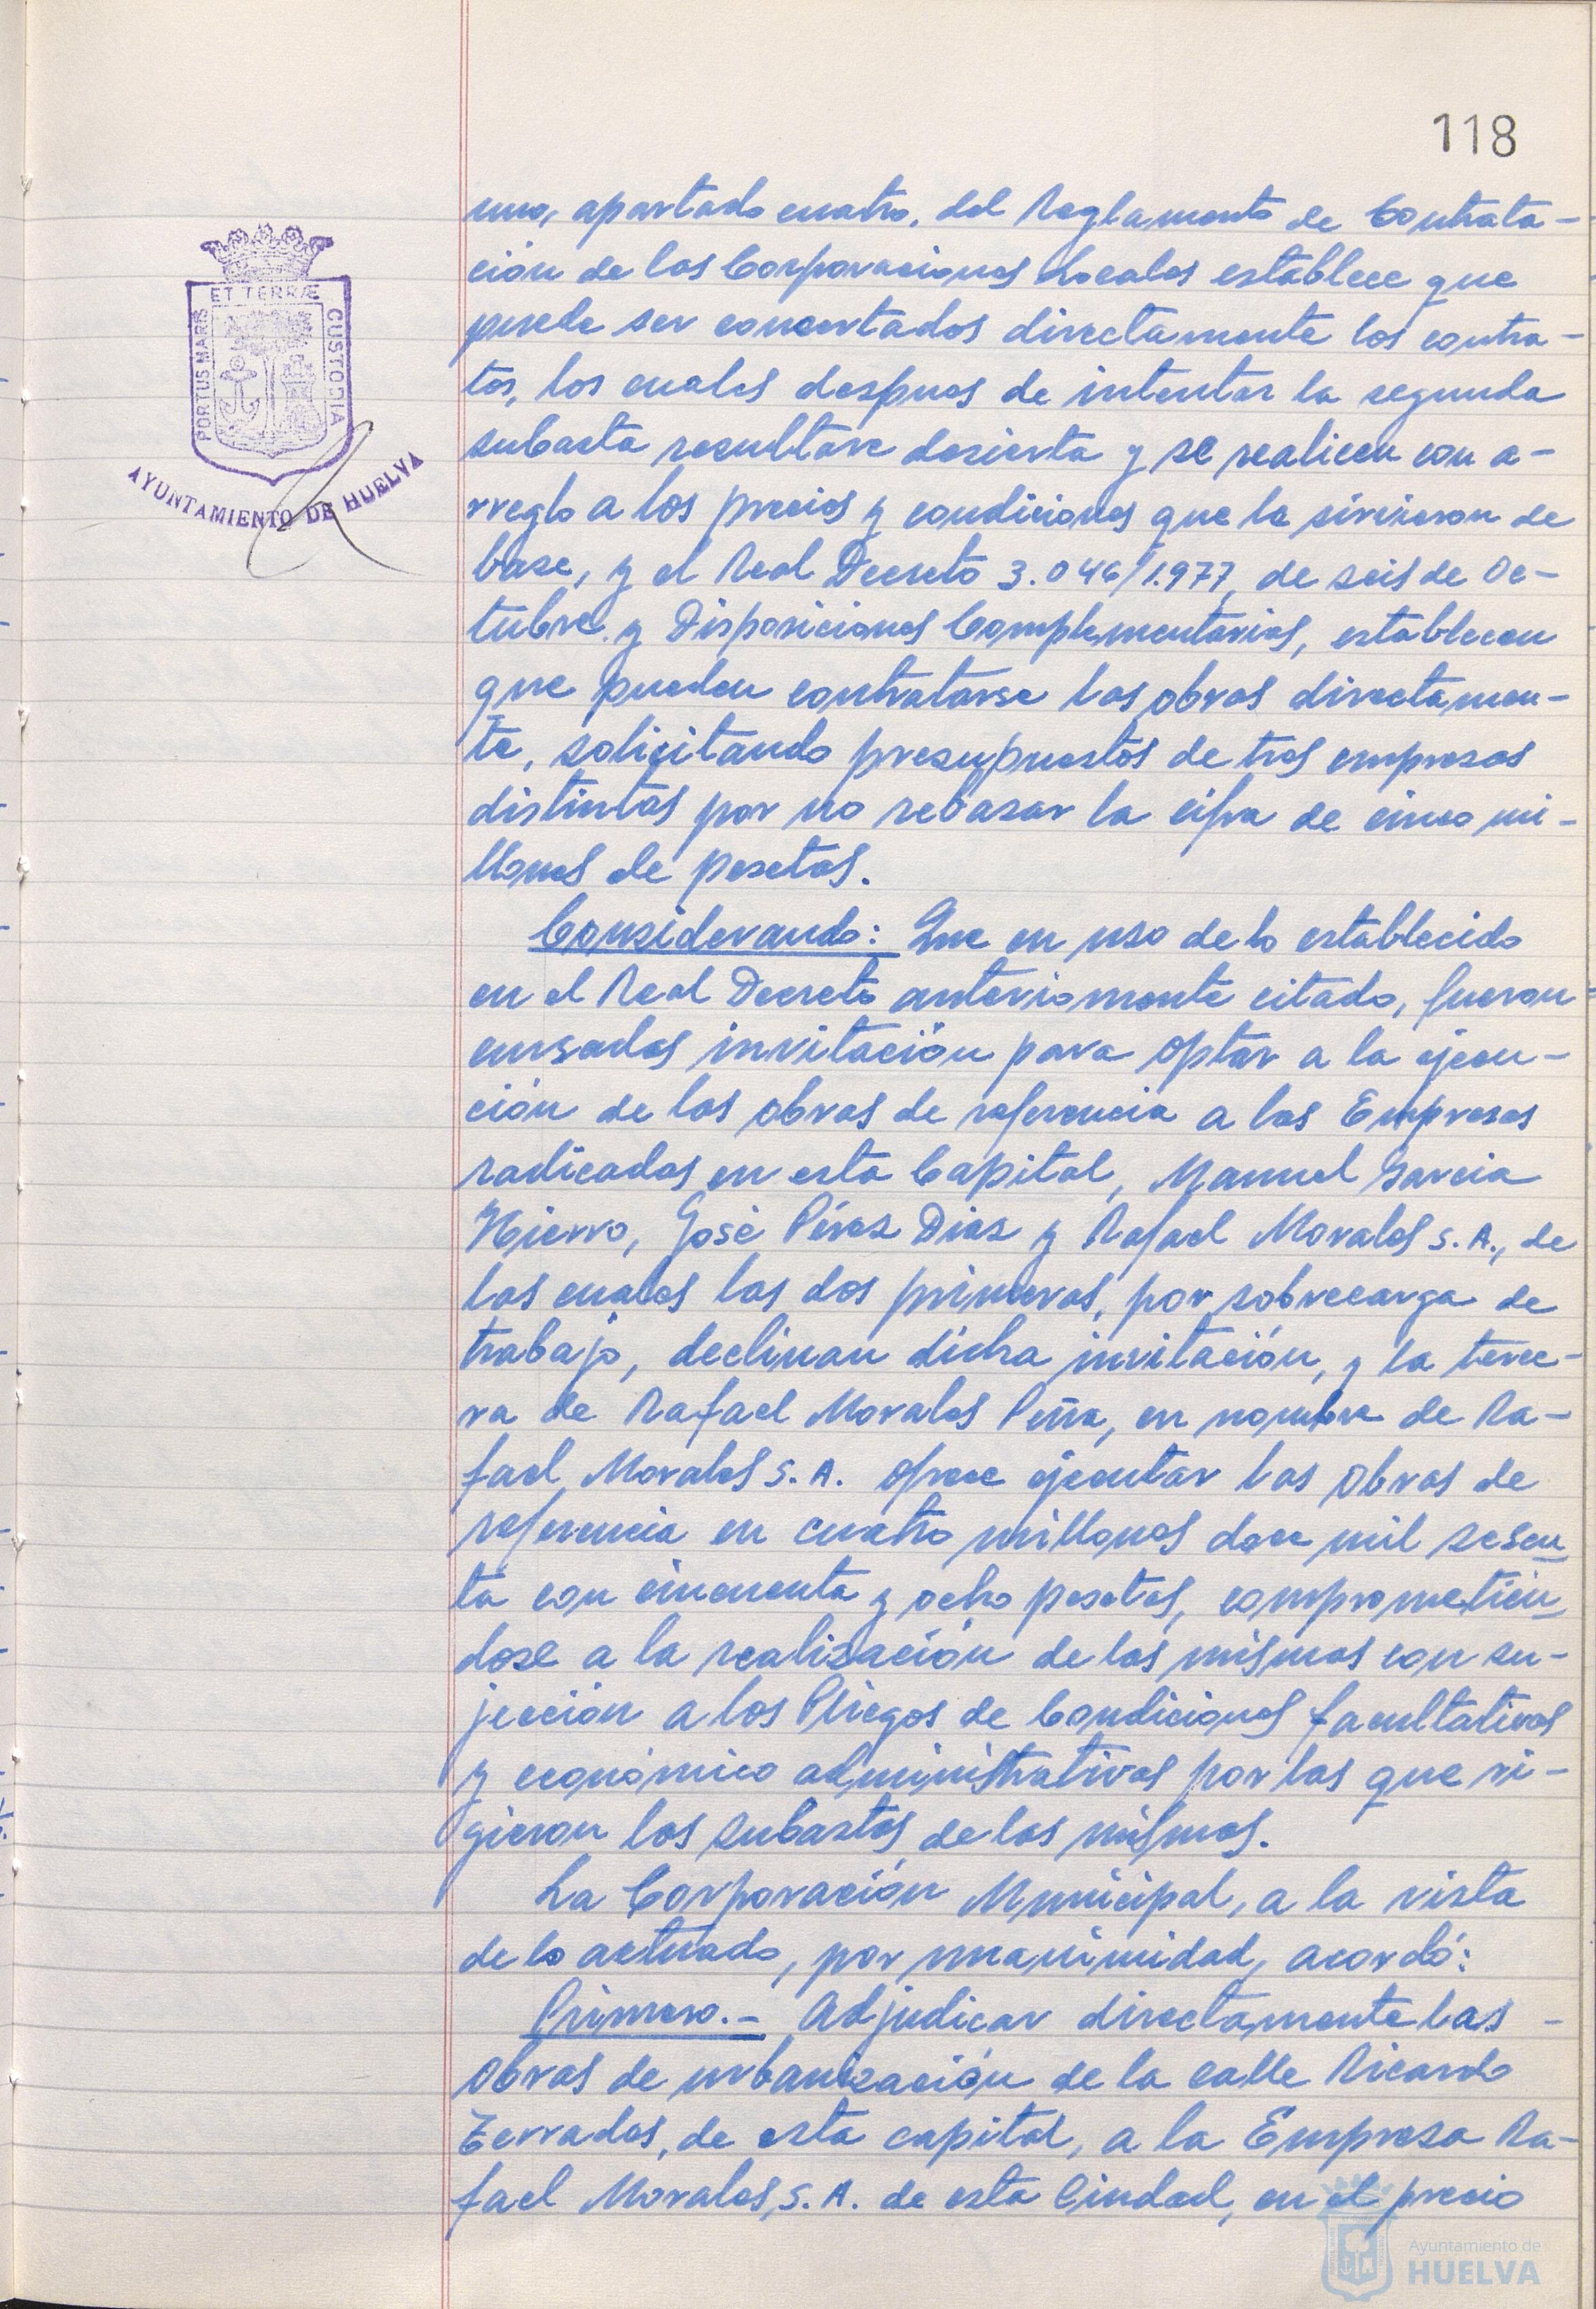 118
ET TERRÆ
PORTUS MARIS
CUSTODIA
AYUNTAMIENTO DE HUELVA
uno, apartado cuatro, del Reglamento de Contrata-
ción de las Corporaciones Locales establece que
puede ser concertados directamente los contra-
tos, los cuales despues de intentar la segunda
subasta resultare desierta y se realicen con a-
rreglo a los precios y condiciones que le sirvieron de
base, y el Real Decreto 3.046/1.977, de seis de Oc-
tubre y Disposiciones Complementarias, establecen
que pueden contratarse las obras directamen-
te, solicitando presupuestos de tres empresas
distintas por no rebasar la cifra de cinco mi-
llones de pesetas.
Considerando: Que en uso de lo establecido
en el Real Decreto anteriomente citado, fueron
cursadas invitación para optar a la ejecu-
ción de las obras de referencia a las Empresas
radicadas en esta Capital, Manuel Garcia
Hierro, José Pérez Diaz y Rafael Morales S.A., de
las cuales las dos primeras, por sobrecarga de
trabajo, declinan dicha invitación, y la terce-
ra de Rafael Morales Peña, en nombre de Ra-
fael Morales S.A. ofrece ejecutar las obras de
referencia en cuatro millones doce mil sesen
ta con cincuenta y ocho pesetas, comprometien
dose a la realización de las mismas con su-
jección a los Pliegos de Condiciones facultativas
y económico administrativas por las que ri-
gieron las subastas de las mismas.
La Corporación Municipal, a la vista
de lo actuado, por unanimidad, acordó:
Primero.- Adjudicar directamente las -
obras de urbanización de la calle Ricardo
Terrades, de esta capital, a la Empresa Ra-
fael Morales, S.A. de esta Ciudad, en el precio
Ayuntamiento de
HUELVA